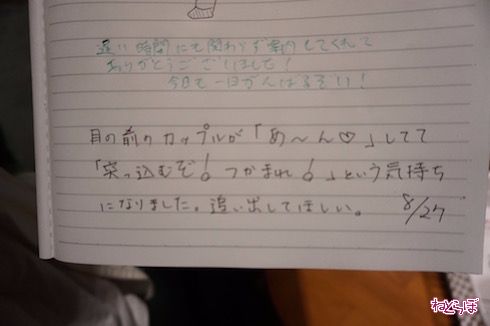 遅い時間にも関わらず案内してくれて
ありがとうございました！
今日も一日がんばるぞい！
目の前のカップルが「あ〜ん♡」してて
「突っ込むぞ！つかまれ！」という気持ち
になりました。追い出してほしい。
8/27
ねとらぼ